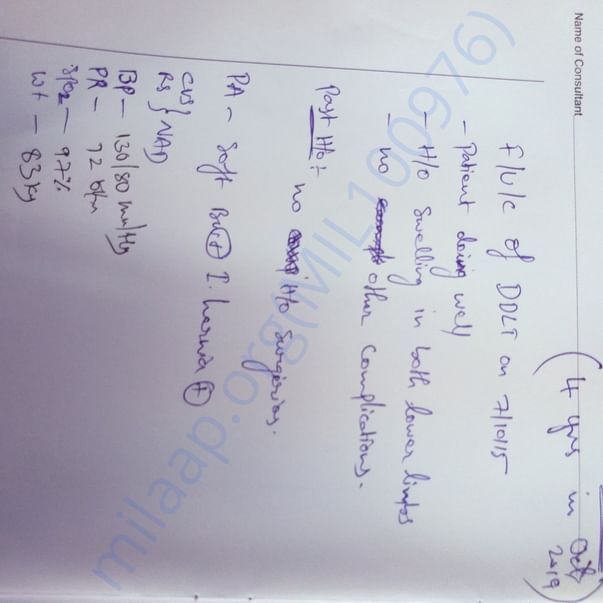 Name of Consultant
(4 yrs in Oct 2019)
F/U/C of DDLT on 7/10/15
- Patient doing well
- H/o Swelling in both lower limbs
- no other complications.
Past H/o:
no H/o Surgeries.
PA - Soft BS(+) I. hernia (+)
CVS } NAD
RS
BP - 130/80 mm/Hg
PR - 72 b/m
SPO2 - 97%
Wt - 83 kg
milaap.org(MIL100976)